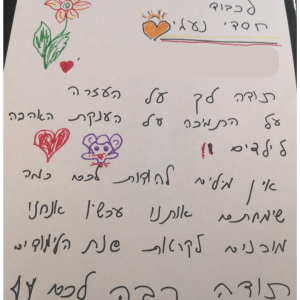 לכבוד
חסדי נעמי
תודה לך על העזרה
על התמיכה על הענקת האהבה
לילדים !!
אין מילים להודות לכם כמה
שימחתם אותנו עכשיו אנחנו
מוכנים לקראת שנת הלימודים
תודה רבה לכם